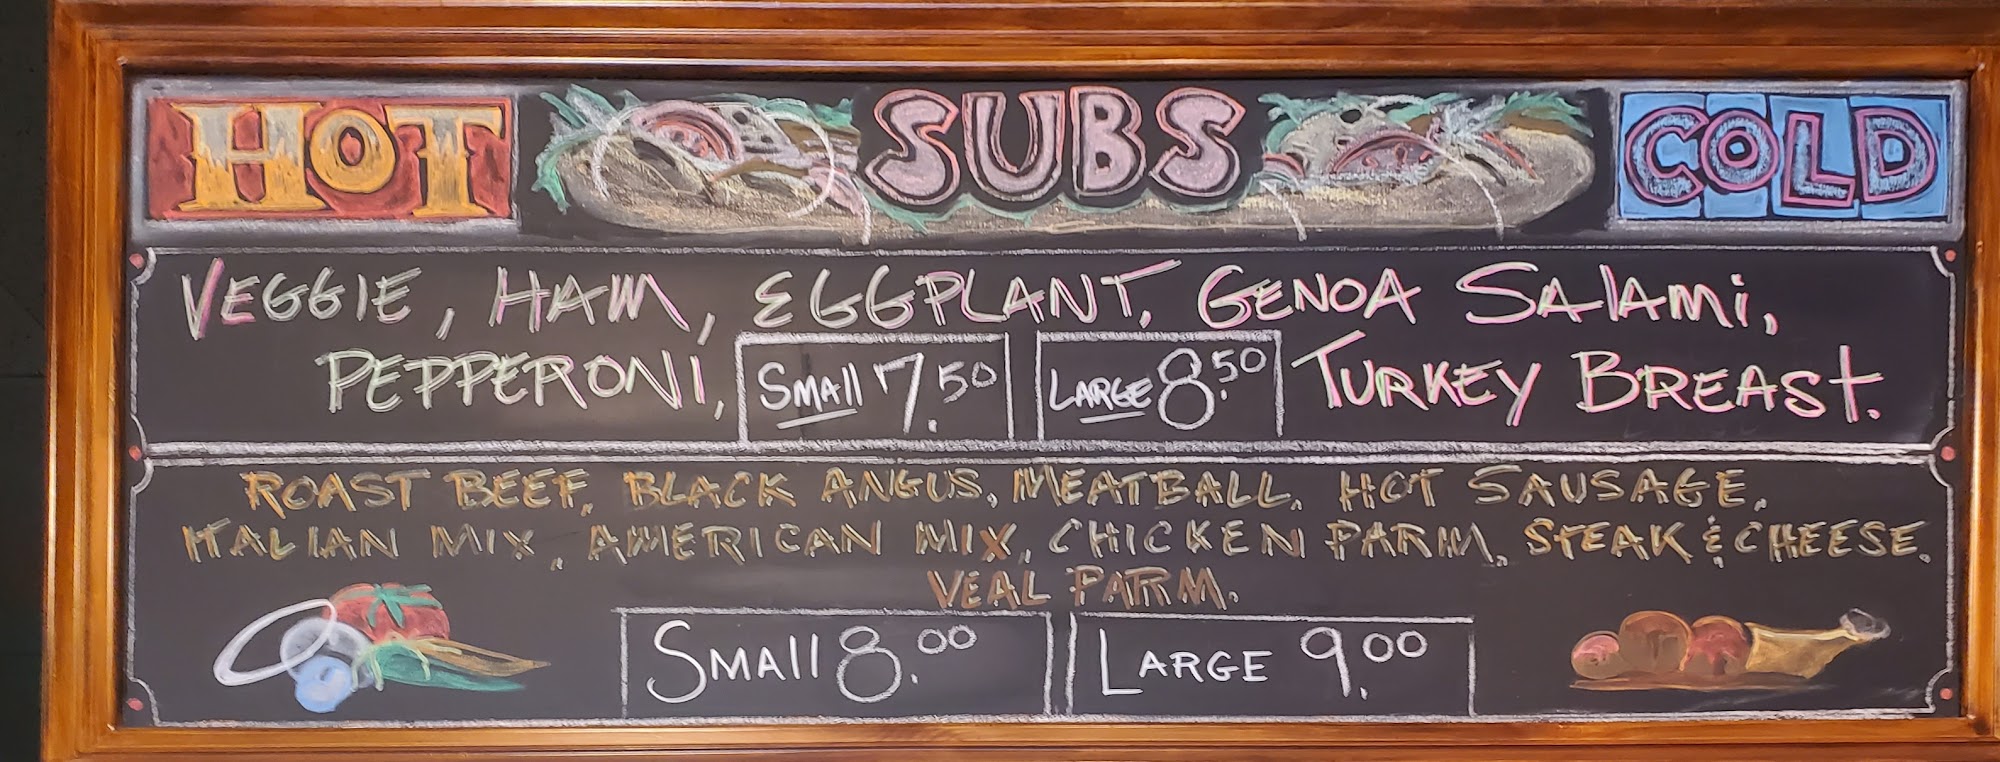 HOT SUBS COLD
VEGGIE, HAM, EGGPLANT, GENOA SALAMi,
PEPPERONI, SMAll 7.50 LARGE 8.50 TURKEY BREAST.
ROAST BEEF, BLACK ANGUS, MEATBALL, HOT SAUSAGE,
ITALIAN MIX, AMERICAN MIX, CHICKEN PARM, STEAK & CHEESE,
VEAL PARM.
SMAll 8.00 LARGE 9.00